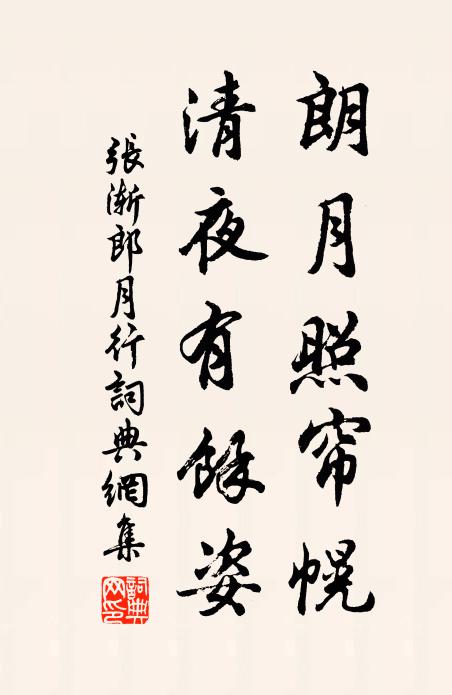 朗月照帘幌
清夜有餘姿
張漸郎月行詞典網集
詞典网印